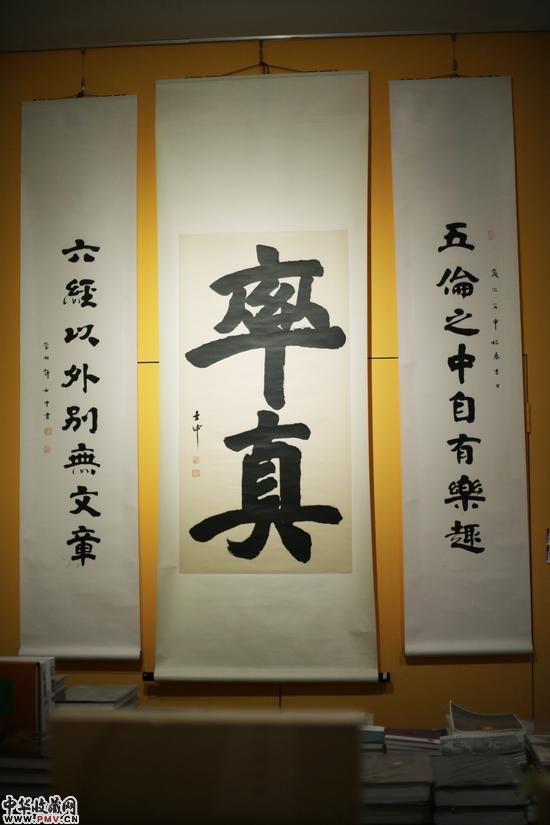 五倫之中自有樂趣
率真
六經以外別無文章
中华收藏网
www.PMV.cn